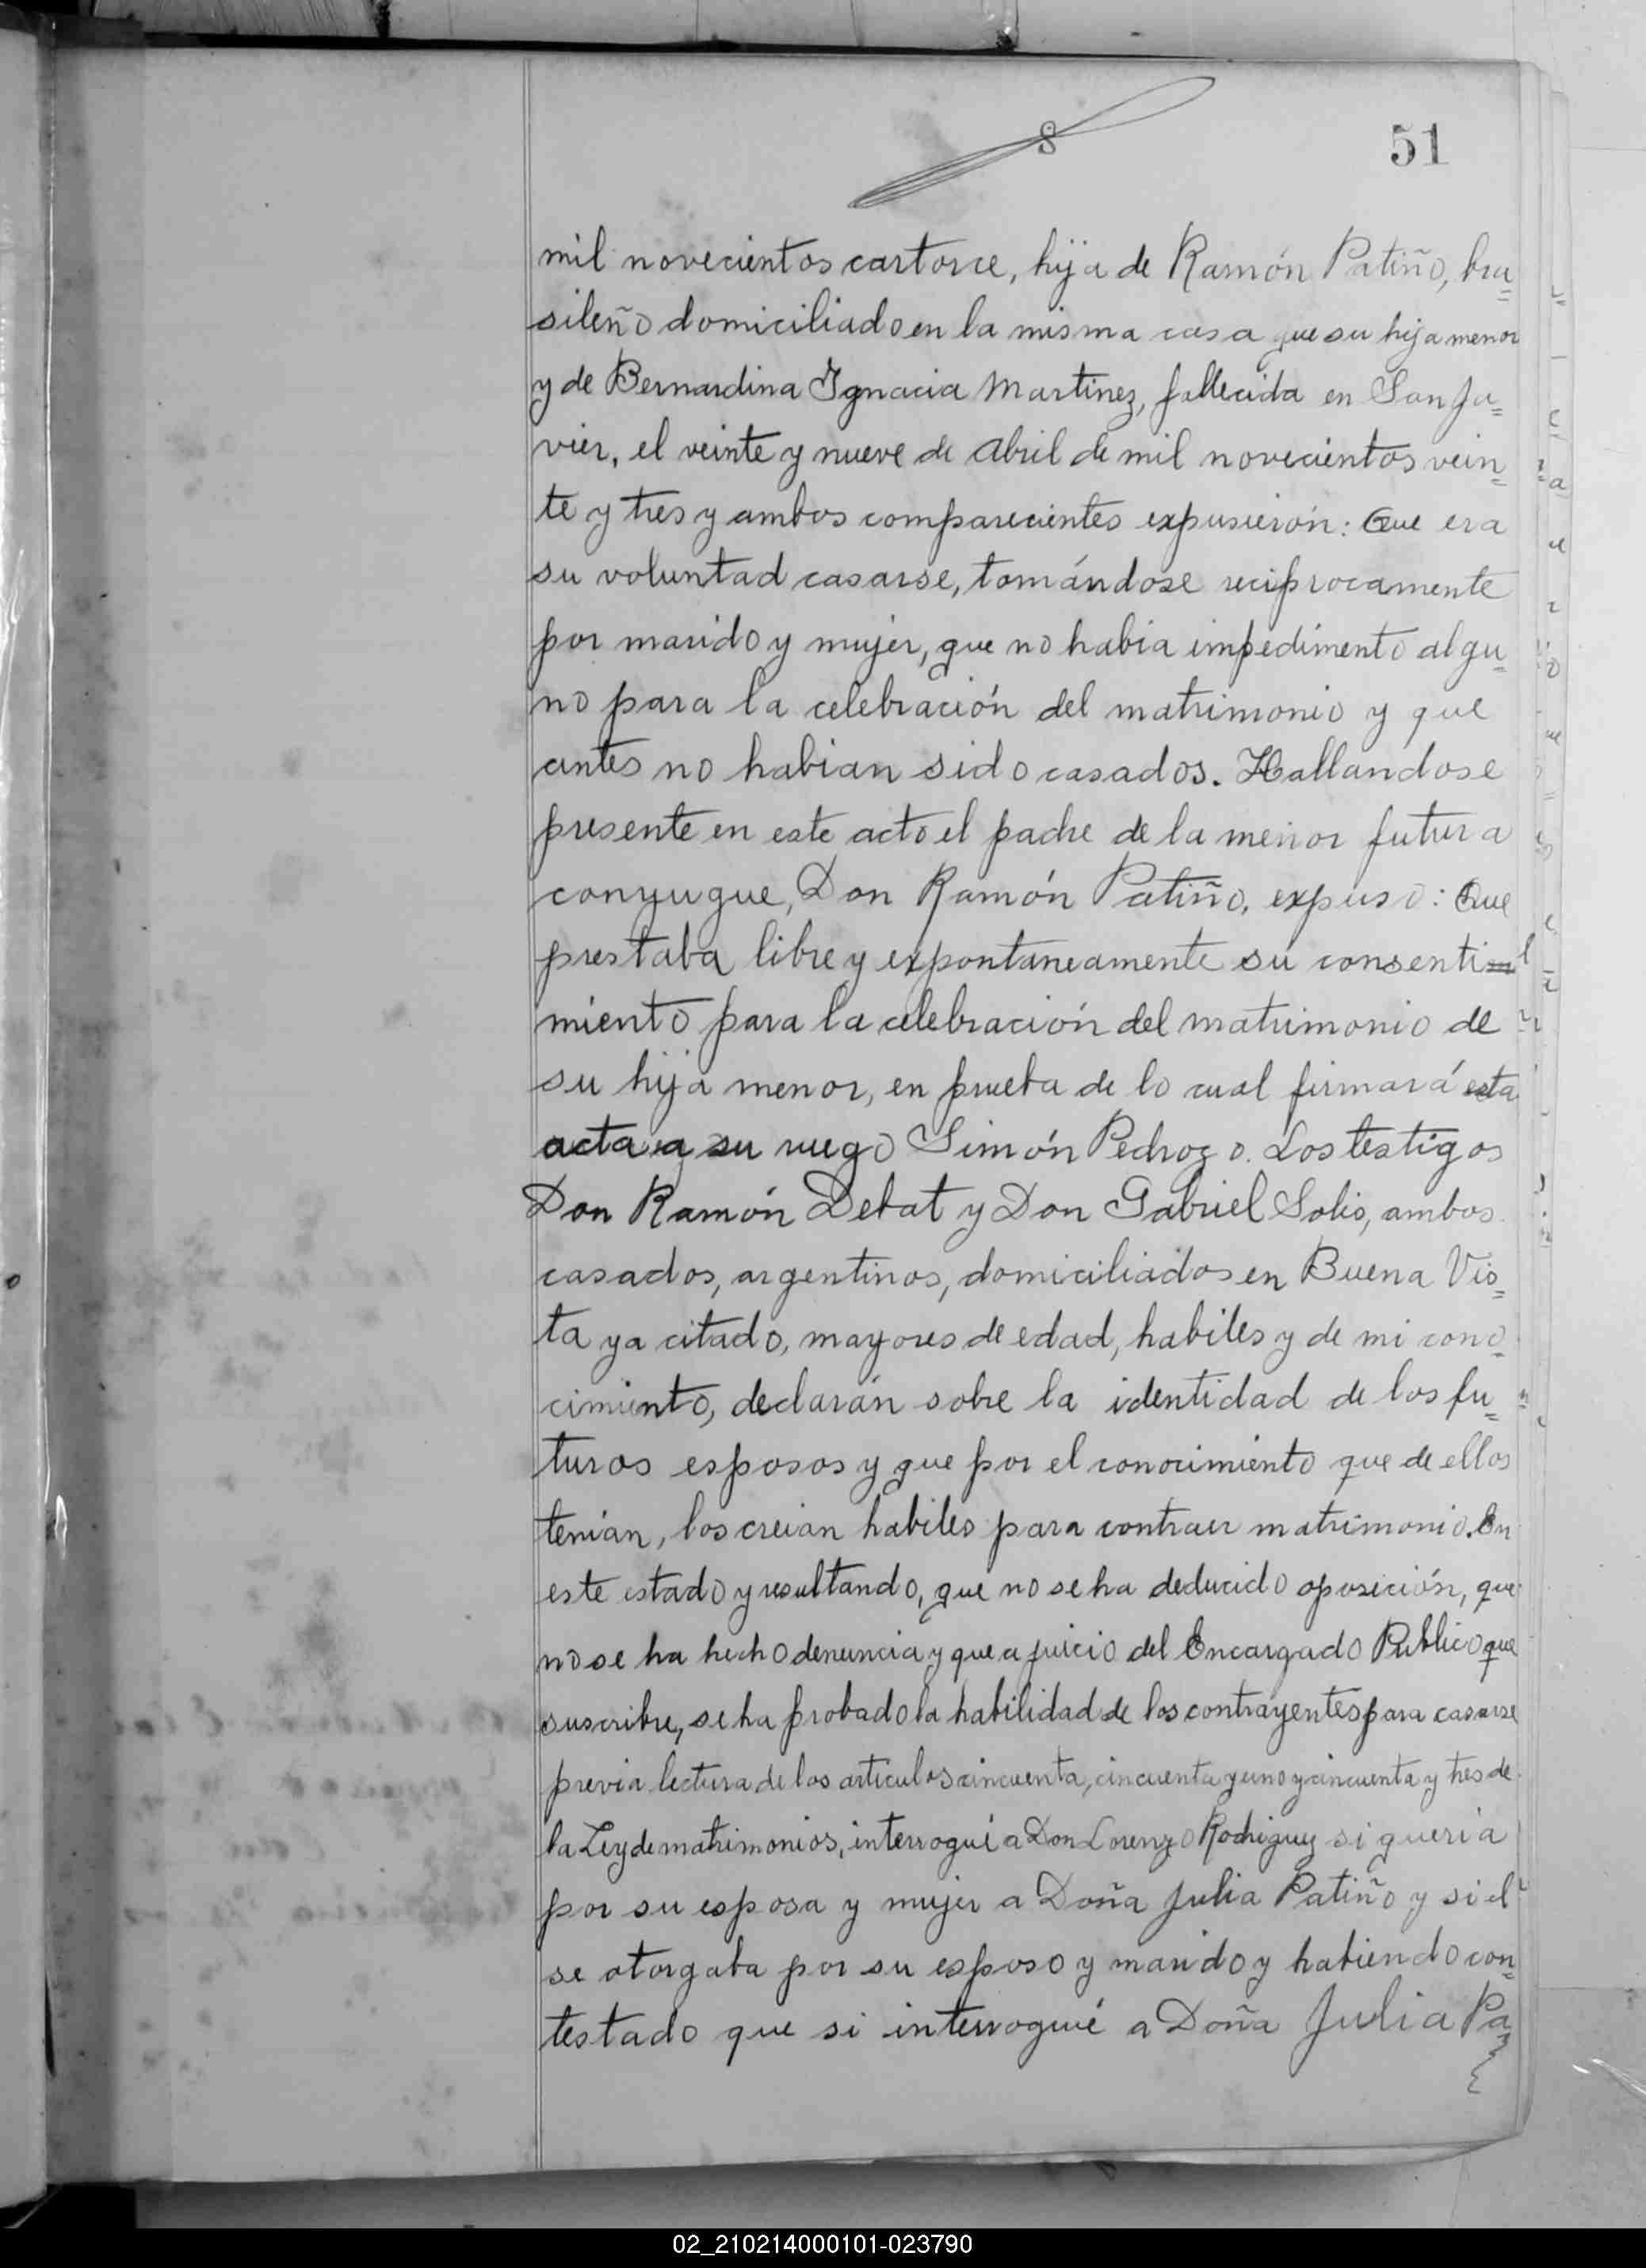 8
51
mil novecientos cartorce, hija de Ramón Patiño, bra=
sileño domiciliado en la misma casa que su hija menor
y de Bernardina Ignacia Martinez, fallecida en San Ja=
vier, el veinte y nueve de Abril de mil novecientos vein=
te y tres y ambos comparecientes expusierón: Que era
su voluntad casarse, tomándose reciprocamente
por marido y mujer, que no habia impedimento algu=
no para la celebración del matrimonio y que
antes no habian sido casados. Hallandose
presente en este acto el padre de la menor futura
conyugue, Don Ramón Patiño, expuso: Que
prestaba libre y expontaneamente su consenti
miento para la celebración del matrimonio de
su hija menor, en prueba de lo cual firmará esta
acta a su ruego Simón Pedrozo. Los testigos
Don Ramón Debat y Don Gabriel Solis, ambos
casados, argentinos, domiciliados en Buena Vis=
ta ya citado, mayores de edad, habiles y de mi cono=
cimiento, declarán sobre la identidad de los fu=
turos esposos y que por el conocimiento que de ellos
tenian, los creian habiles para contraer matrimonio. En
este estado y resultando, que no se ha deducido oposición, que
no se ha hecho denuncia y que a juicio del Encargado Publico que
suscribe, se ha probado la habilidad de los contrayentes para casarse
previa lectura de los articulos cincuenta, cincuenta y uno y cincuenta y tres de
la Ley de matrimonios, interrogué a Don Lorenzo Rodriguez si queria
por su esposa y mujer a Doña Julia Patiño y si el
se otorgaba por su esposo y marido y habiendo con=
testado que si interrogué a Doña Julia Pa=
02_210214000101-023790